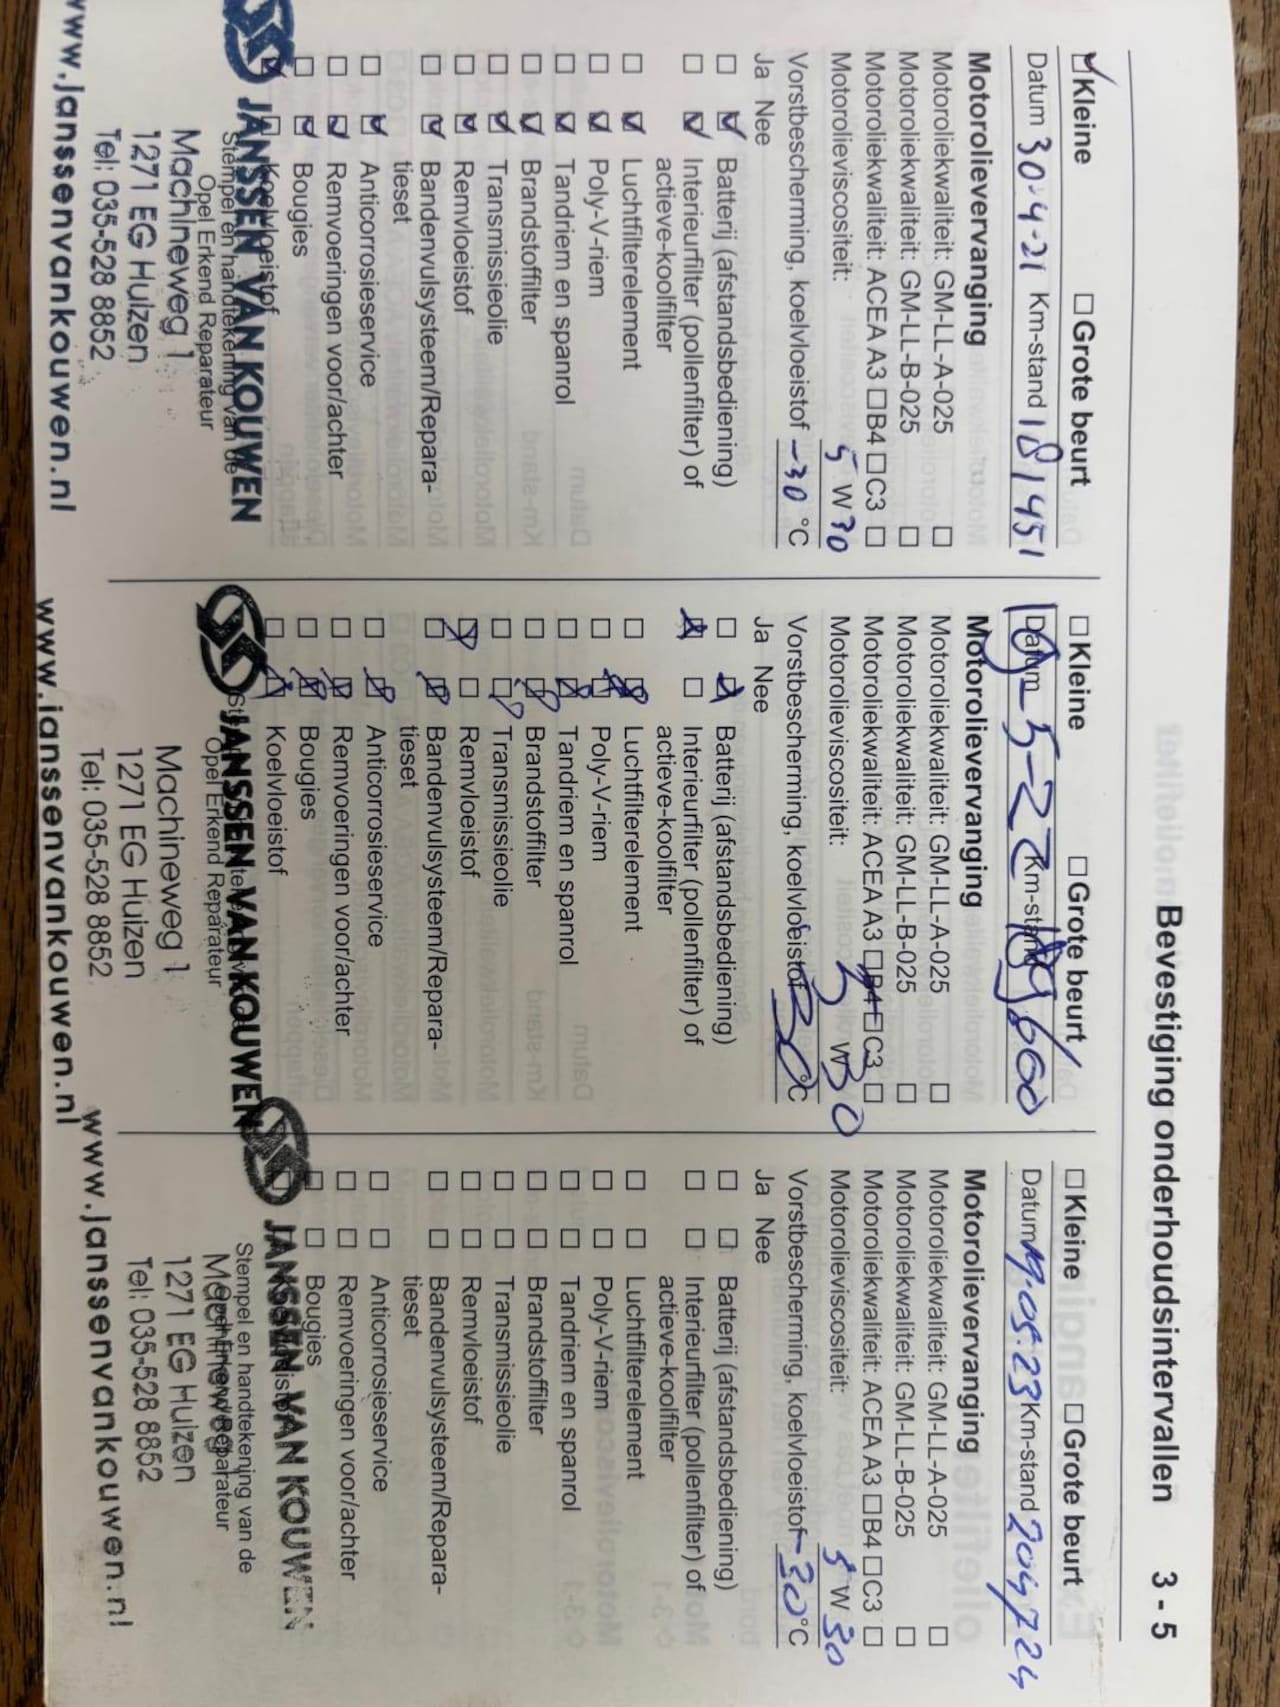 Bevestiging onderhoudsintervallen 3 - 5
Kleine Grote beurt
Datum 30-4-21 Km-stand 181451
Motorolievervanging
Motoroliekwaliteit: GM-LL-A-025
Motoroliekwaliteit: GM-LL-B-025
Motoroliekwaliteit: ACEA A3 B4 C3
Motorolieviscositeit: 5 W 30
Vorstbescherming, koelvloeistof -30 °C
Ja Nee
Batterij (afstandsbediening)
Interieurfilter (pollenfilter) of
actieve-koolfilter
Luchtfilterelement
Poly-V-riem
Tandriem en spanrol
Brandstoffilter
Transmissieolie
Remvloeistof
Bandenvulsysteem/Repara-
tieset
Anticorrosieservice
Remvoeringen voor/achter
Bougies
Koelvloeistof
JANSSEN VAN KOUWEN
Stempel en handtekening van de
Opel Erkend Reparateur
Machineweg 1
1271 EG Huizen
Tel: 035-528 8852
www.janssenvankouwen.nl
Kleine Grote beurt
Datum -5-22 Km-stand
Motorolievervanging
Motoroliekwaliteit: GM-LL-A-025
Motoroliekwaliteit: GM-LL-B-025
Motoroliekwaliteit: ACEA A3 B4 C3
Motorolieviscositeit: 5 W 30
Vorstbescherming, koelvloeistof 30 °C
Ja Nee
Batterij (afstandsbediening)
Interieurfilter (pollenfilter) of
actieve-koolfilter
Luchtfilterelement
Poly-V-riem
Tandriem en spanrol
Brandstoffilter
Transmissieolie
Remvloeistof
Bandenvulsysteem/Repara-
tieset
Anticorrosieservice
Remvoeringen voor/achter
Bougies
Koelvloeistof
JANSSEN VAN KOUWEN
Opel Erkend Reparateur
Machineweg 1
1271 EG Huizen
Tel: 035-528 8852
www.janssenvankouwen.nl
Kleine Grote beurt
Datum 19.05.23 Km-stand 204724
Motorolievervanging
Motoroliekwaliteit: GM-LL-A-025
Motoroliekwaliteit: GM-LL-B-025
Motoroliekwaliteit: ACEA A3 B4 C3
Motorolieviscositeit: 5 W 30
Vorstbescherming, koelvloeistof -30 °C
Ja Nee
Batterij (afstandsbediening)
Interieurfilter (pollenfilter) of
actieve-koolfilter
Luchtfilterelement
Poly-V-riem
Tandriem en spanrol
Brandstoffilter
Transmissieolie
Remvloeistof
Bandenvulsysteem/Repara-
tieset
Anticorrosieservice
Remvoeringen voor/achter
Bougies
JANSSEN VAN KOUWEN
Stempel en handtekening van de
Opel Erkend Reparateur
Machineweg 1
1271 EG Huizen
Tel: 035-528 8852
www.janssenvankouwen.nl